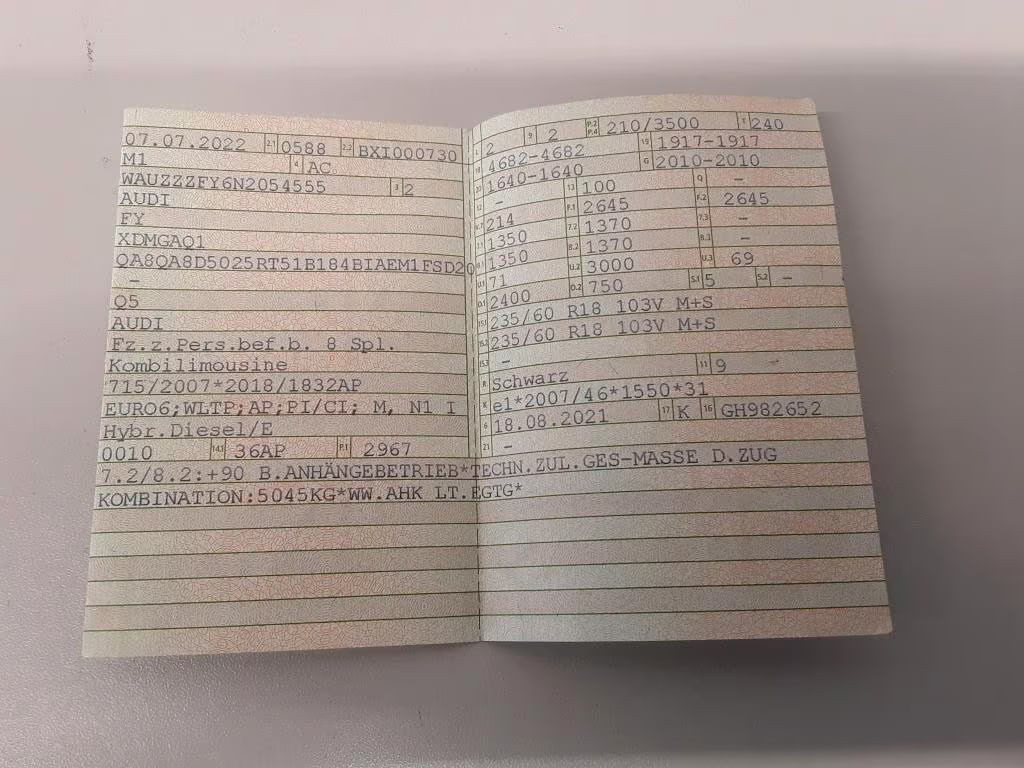 07.07.2022 2.1 0588 2.2 BXI000730
M1 4 AC
WAUZZZFY6N2054555 3 2
AUDI
FY
XDMGAQ1
QA8QA8D5025RT51B184BIAEM1FSD20
–
Q5
AUDI
Fz.z.Pers.bef.b. 8 Spl.
Kombilimousine
715/2007*2018/1832AP
EURO6;WLTP;AP;PI/CI; M, N1 I
Hybr.Diesel/E
0010 14.1 36AP P.1 2967
2 9 2 P.2 P.4 210/3500 T 240
18 4682-4682 19 1917-1917
20 1640-1640 G 2010-2010
12 – 13 100 Q –
V.7 214 F.1 2645 F.2 2645
7.1 1350 7.2 1370 7.3 –
8.1 1350 8.2 1370 8.3 –
U.1 71 U.2 3000 U.3 69
O.1 2400 O.2 750 S.1 5 S.2 –
15.1 235/60 R18 103V M+S
15.2 235/60 R18 103V M+S
15.3 –
R Schwarz 11 9
K e1*2007/46*1550*31
6 18.08.2021 17 K 16 GH982652
21 –
7.2/8.2:+90 B.ANHÄNGEBETRIEB*TECHN.ZUL.GES-MASSE D.ZUG
KOMBINATION:5045KG*WW.AHK LT.EGTG*